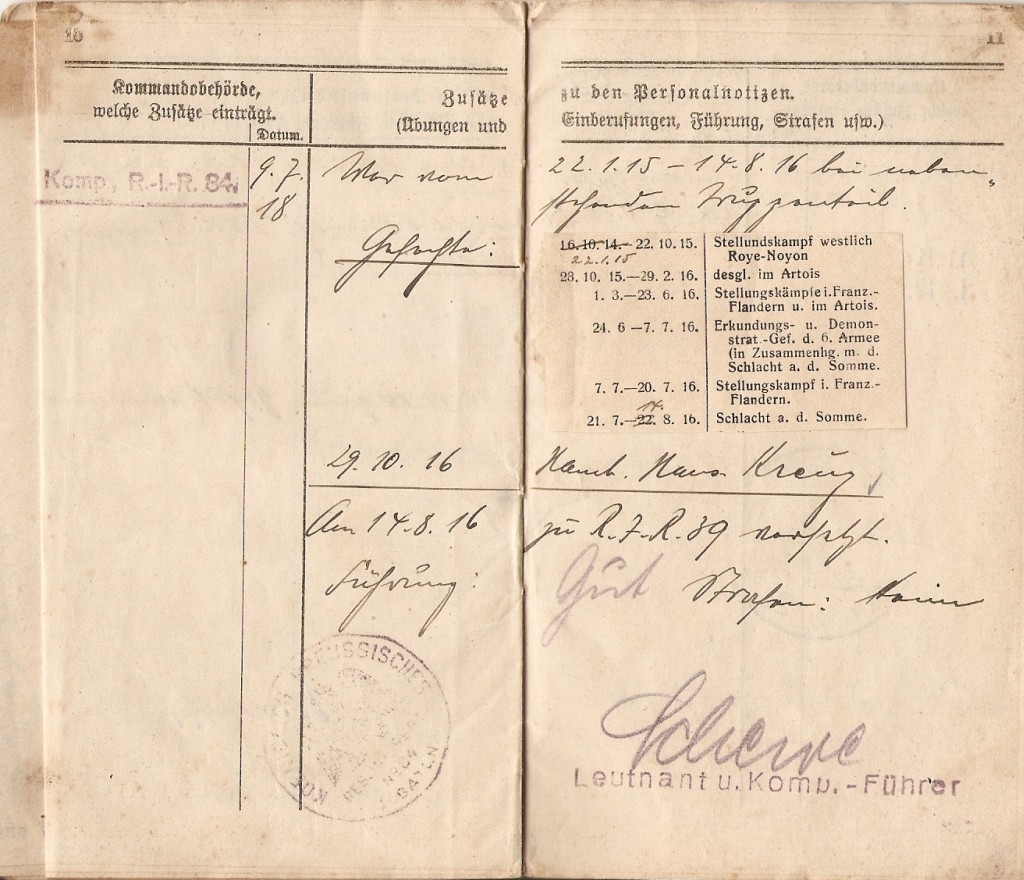 10
11
Kommandobehörde,
welche Zusätze einträgt.
Datum.
Zusätze zu den Personalnotizen.
(Übungen und Einberufungen, Führung, Strafen usw.)
Komp., R.-I.-R. 84.
9.7.
18
War vom 22.1.15 – 14.8.16 bei neben-
stehendem Truppenteil.
Gefechte:
16.10.14.– 22.10.15. Stellundskampf westlich
22.1.15 Roye-Noyon
23.10.15.—29.2.16. desgl. im Artois
1. 3.—23. 6. 16. Stellungskämpfe i. Franz.-
Flandern u. im Artois.
24. 6 –7. 7. 16. Erkundungs- u. Demon-
strat.-Gef. d. 6. Armee
(in Zusammenhg. m. d.
Schlacht a. d. Somme.
7. 7.—20. 7. 16. Stellungskampf i. Franz.-
Flandern.
14.
21. 7.—22. 8. 16. Schlacht a. d. Somme.
29.10.16 Hamb. Hans. Kreuz
Am 14.8.16 zu R.I.R. 39 versetzt.
Führung: Gut Strafen: keine
KOENIGLICH PREUSSISCHES
RES. INF. RGT. N° 84
Leutnant u. Komp.-Führer